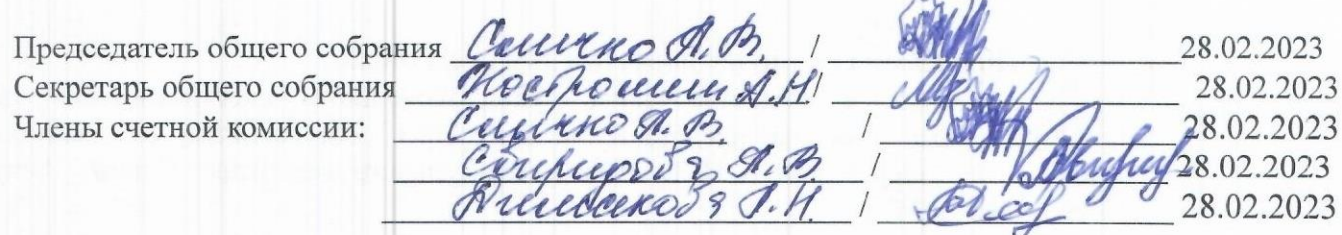 Председатель общего собрания Смичко А.В. / 28.02.2023
Секретарь общего собрания Костромин А.Н / 28.02.2023
Члены счетной комиссии: А.В. / 28.02.2023
Свиридова А.В. / 28.02.2023
Г.Н. / 28.02.2023